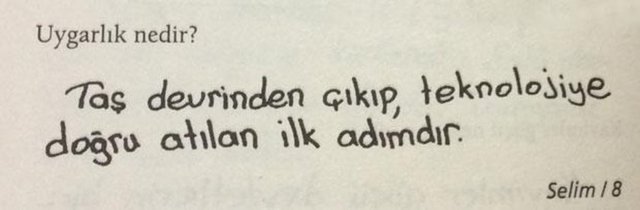 Uygarlık nedir?
Taş devrinden çıkıp, teknolojiye
doğru atılan ilk adımdır.
Selim / 8